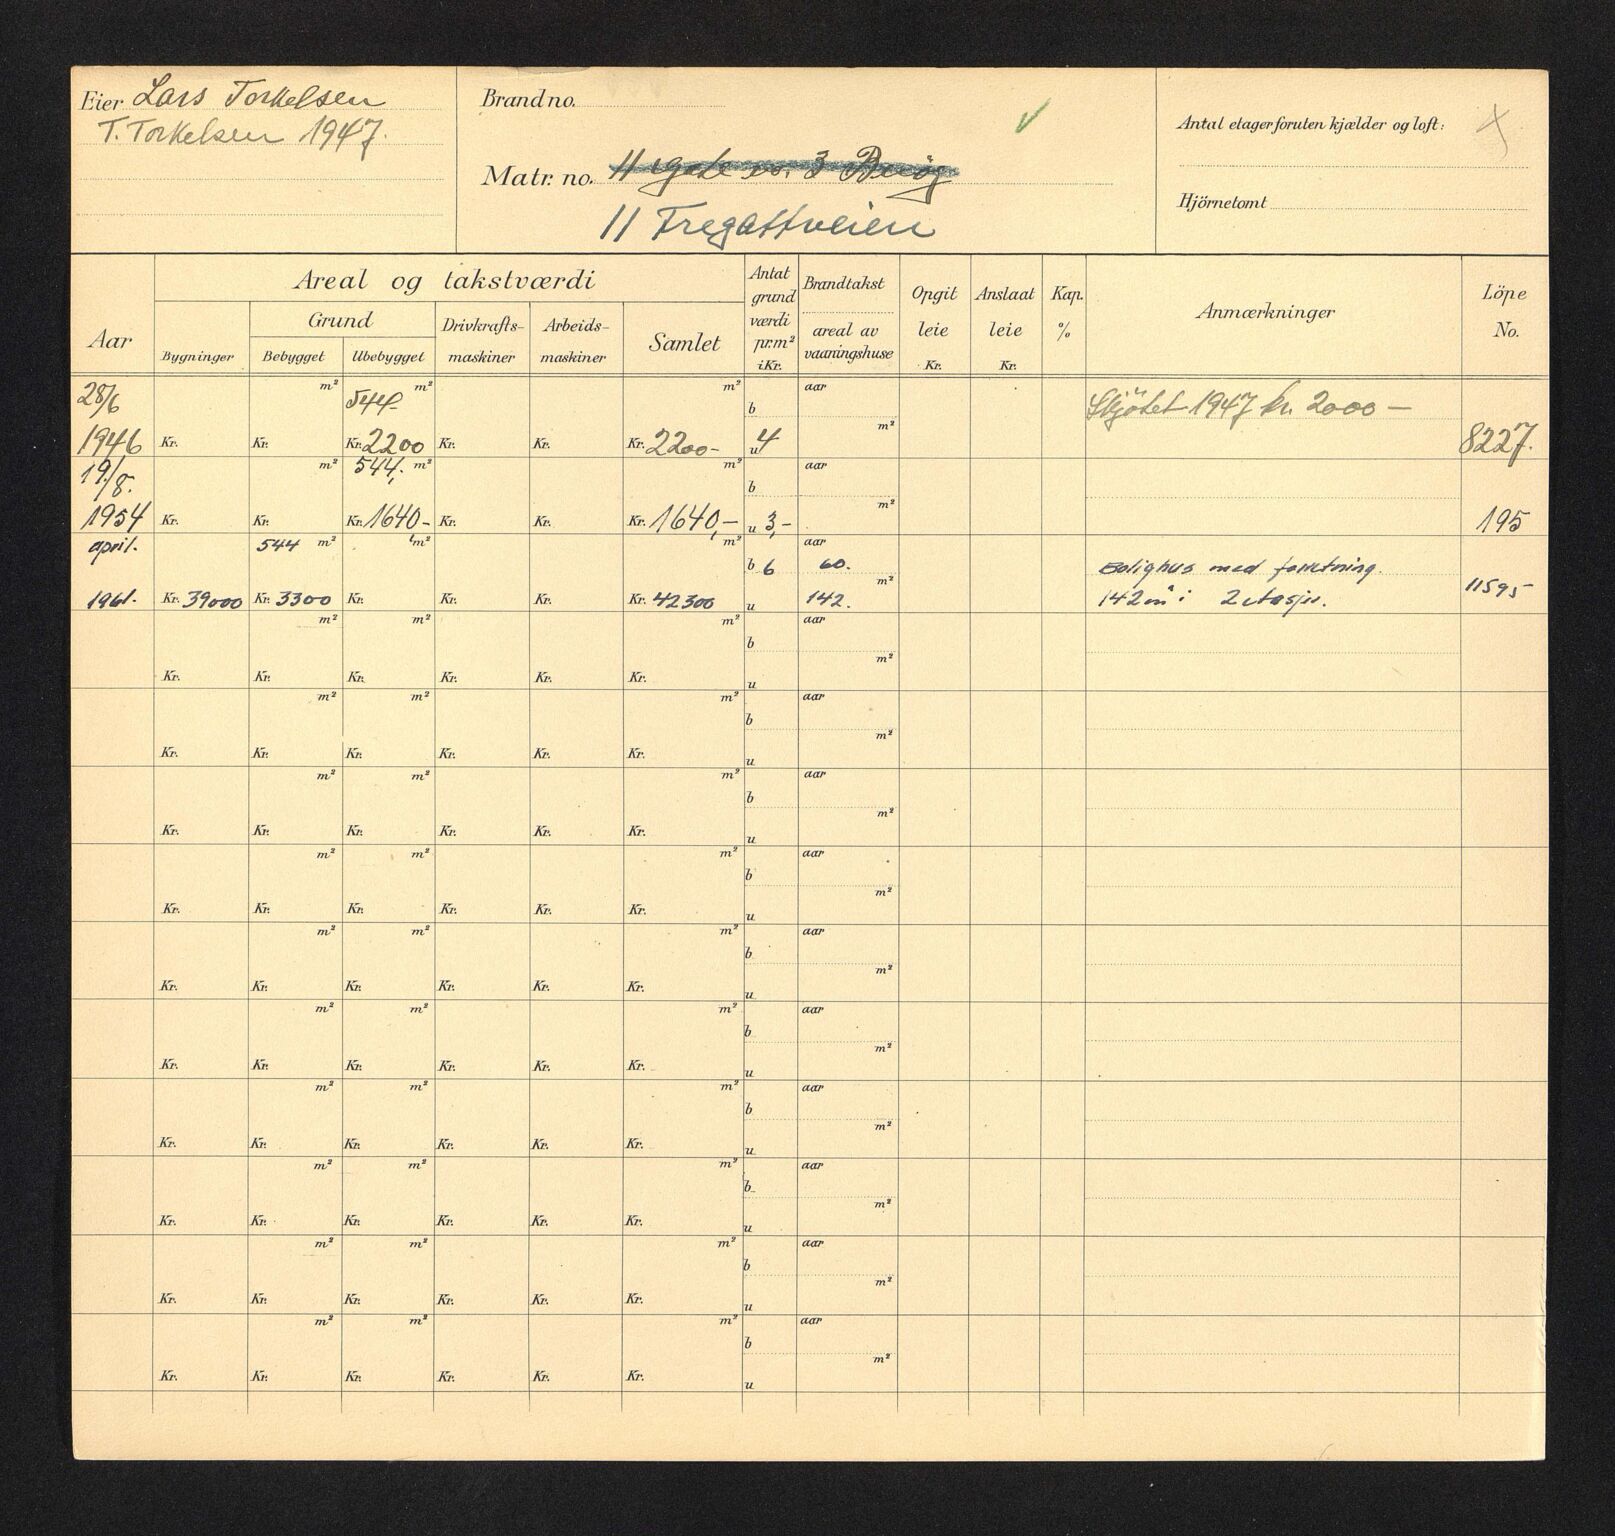 Eier Lars Torkelsen
T. Torkelsen 1947.
Brand no.
Matr. no. 11 gate no. 3 Buöy
11 Fregattveien
Antal etager foruten kjælder og loft:
Hjörnetomt
Aar
Areal og takstværdi
Bygninger
Grund
Bebygget Ubebygget
Drivkrafts-
maskiner
Arbeids-
maskiner
Samlet
Antat
grund
værdi
pr.m²
i Kr.
Brandtakst
areal av
vaaningshuse
Opgit
leie
Kr.
Anslaat
leie
Kr.
Kap.
%
Anmærkninger
Löpe
No.
28/6 m² 544 m² m² b aar Skjötet 1947 kr. 2000 —
1946 Kr. Kr. Kr. 2200 Kr. Kr. Kr. 2200- u 4 m² 8227.
19./8. m² 544, m² m² b aar
1954 Kr. Kr. Kr. 1640- Kr. Kr. Kr. 1640,- u 3,- m² 195
april. 544 m² m² m² b 6 aar 60. Bolighus med
1961. Kr. 39000 Kr. 3300 Kr. Kr. Kr. Kr. 42300 u 142. m² 142 m² i 2 etasjer. 11595
m² m² m² b aar
Kr. Kr. Kr. Kr. Kr. Kr. u m²
m² m² m² b aar
Kr. Kr. Kr. Kr. Kr. Kr. u m²
m² m² m² b aar
Kr. Kr. Kr. Kr. Kr. Kr. u m²
m² m² m² b aar
Kr. Kr. Kr. Kr. Kr. Kr. u m²
m² m² m² b aar
Kr. Kr. Kr. Kr. Kr. Kr. u m²
m² m² m² b aar
Kr. Kr. Kr. Kr. Kr. Kr. u m²
m² m² m² b aar
Kr. Kr. Kr. Kr. Kr. Kr. u m²
m² m² m² b aar
Kr. Kr. Kr. Kr. Kr. Kr. u m²
m² m² m² b aar
Kr. Kr. Kr. Kr. Kr. Kr. u m²
m² m² m² b aar
Kr. Kr. Kr. Kr. Kr. Kr. u m²